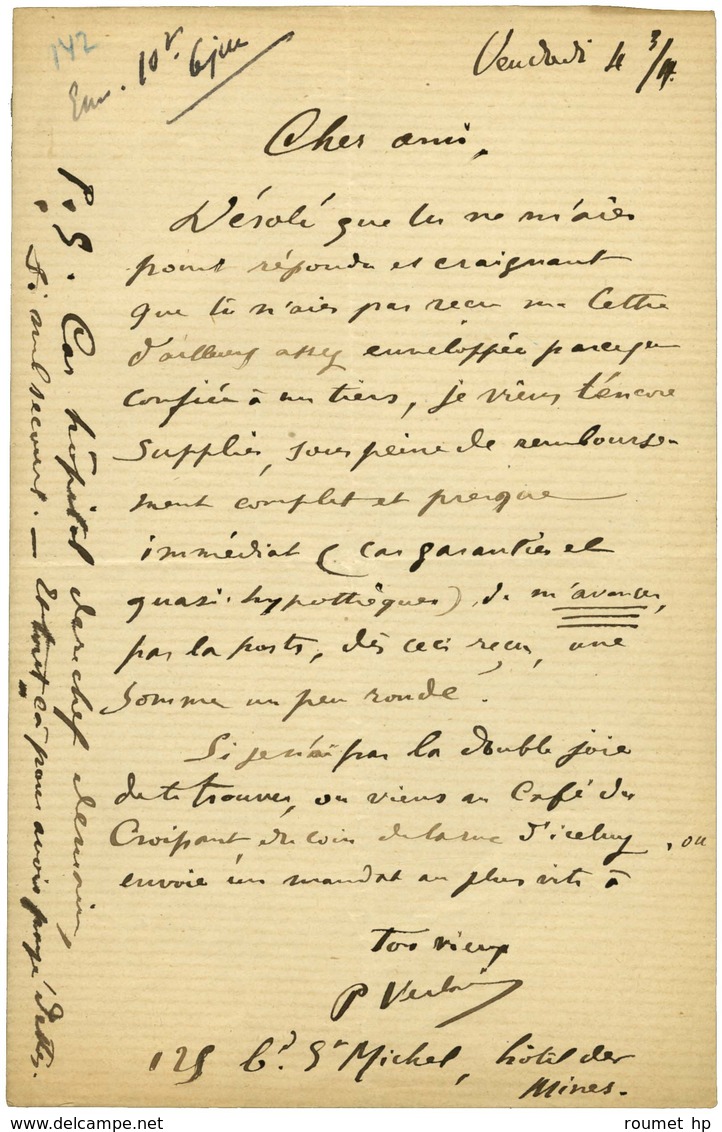 142
Env. 10f 6 juin
Vendredi 4 3/4.
Cher ami,
Désolé que tu ne m'aies
point répondu et craignant
que tu n'aies pas reçu ma lettre
d'ailleurs assez enveloppée parceque
confiée à un tiers, je viens t'encore
supplier, sous peine de rembourse-
ment complet et presque
immédiat (car garanties et
quasi-hypothèques), de m'avancer,
par la poste, dès ceci reçu, une
somme un peu ronde.
Si je n'ai pas la double joie
de te trouver, ou viens au Café du
Croissant du coin de la rue d'iceluy, ou
envoie un mandat au plus vite à
ton vieux
P Verlaine
125 bd St Michel, hôtel des
Mines.
P.S. Car hôpital derechef demain,
si nul secours. — Et tout ça pour avoir payé dettes.
roumet hp